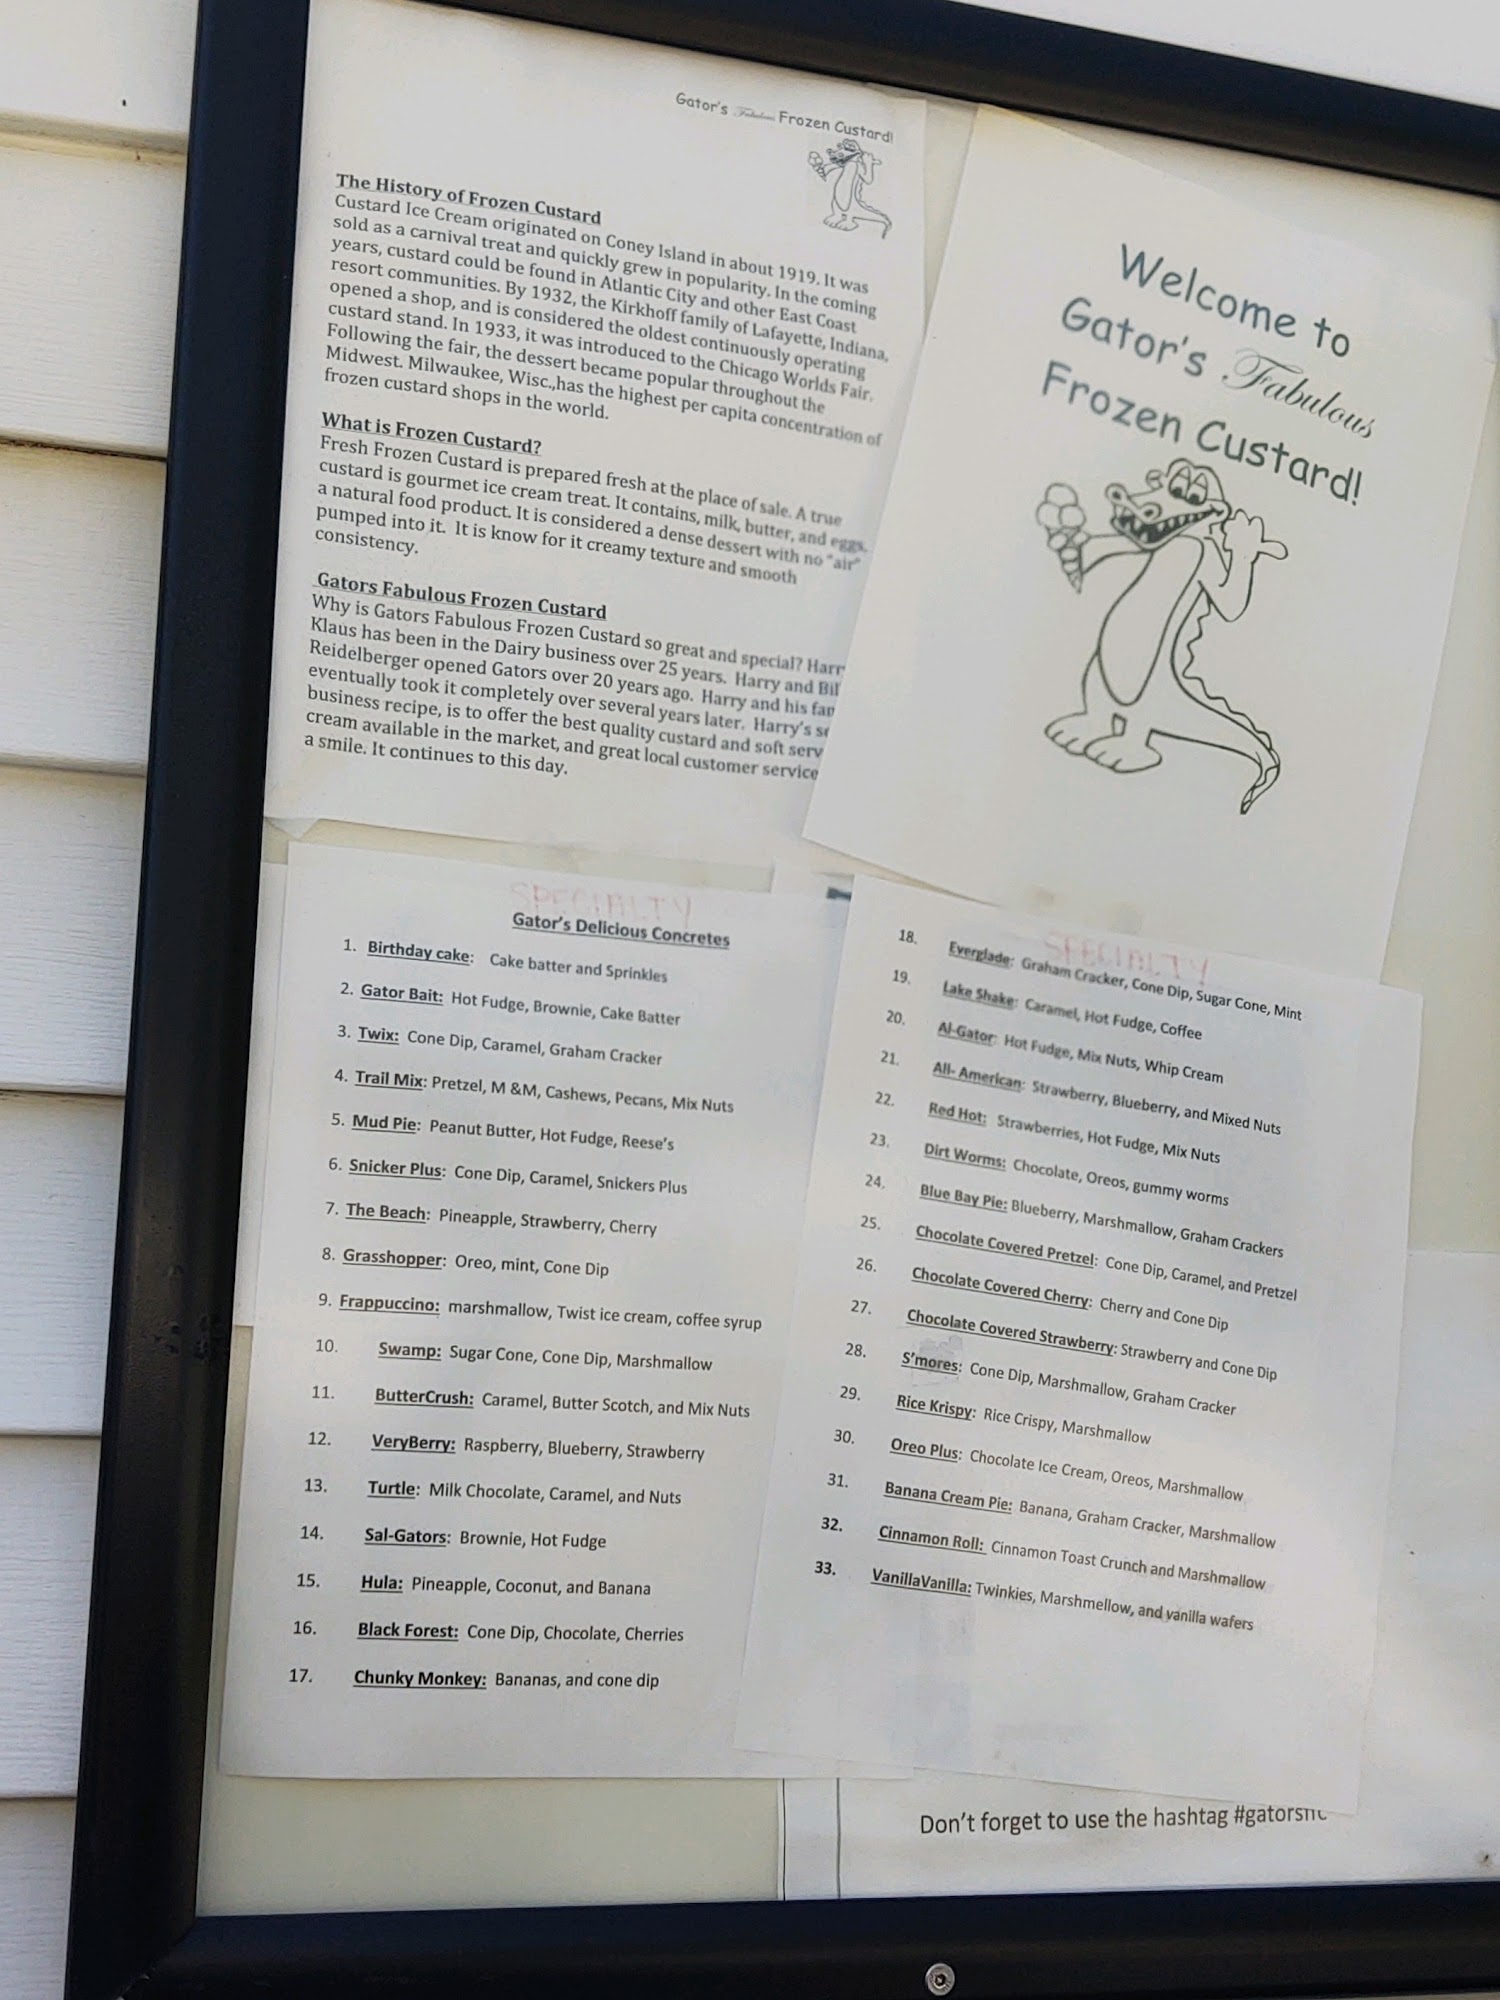 Gator's Fabulous Frozen Custard!
The History of Frozen Custard
Custard Ice Cream originated on Coney Island in about 1919. It was
sold as a carnival treat and quickly grew in popularity. In the coming
years, custard could be found in Atlantic City and other East Coast
resort communities. By 1932, the Kirkhoff family of Lafayette, Indiana,
opened a shop, and is considered the oldest continuously operating
custard stand. In 1933, it was introduced to the Chicago Worlds Fair.
Following the fair, the dessert became popular throughout the
Midwest. Milwaukee, Wisc.,has the highest per capita concentration of
frozen custard shops in the world.
What is Frozen Custard?
Fresh Frozen Custard is prepared fresh at the place of sale. A true
custard is gourmet ice cream treat. It contains, milk, butter, and eggs.
a natural food product. It is considered a dense dessert with no "air"
pumped into it. It is know for it creamy texture and smooth
consistency.
Gators Fabulous Frozen Custard
Why is Gators Fabulous Frozen Custard so great and special? Harr
Klaus has been in the Dairy business over 25 years. Harry and Bil
Reidelberger opened Gators over 20 years ago. Harry and his fam
eventually took it completely over several years later. Harry's se
business recipe, is to offer the best quality custard and soft serv
cream available in the market, and great local customer service
a smile. It continues to this day.
Welcome to
Gator's Fabulous
Frozen Custard!
SPECIALTY
Gator's Delicious Concretes
1. Birthday cake: Cake batter and Sprinkles
2. Gator Bait: Hot Fudge, Brownie, Cake Batter
3. Twix: Cone Dip, Caramel, Graham Cracker
4. Trail Mix: Pretzel, M &M, Cashews, Pecans, Mix Nuts
5. Mud Pie: Peanut Butter, Hot Fudge, Reese's
6. Snicker Plus: Cone Dip, Caramel, Snickers Plus
7. The Beach: Pineapple, Strawberry, Cherry
8. Grasshopper: Oreo, mint, Cone Dip
9. Frappuccino: marshmallow, Twist ice cream, coffee syrup
10. Swamp: Sugar Cone, Cone Dip, Marshmallow
11. ButterCrush: Caramel, Butter Scotch, and Mix Nuts
12. VeryBerry: Raspberry, Blueberry, Strawberry
13. Turtle: Milk Chocolate, Caramel, and Nuts
14. Sal-Gators: Brownie, Hot Fudge
15. Hula: Pineapple, Coconut, and Banana
16. Black Forest: Cone Dip, Chocolate, Cherries
17. Chunky Monkey: Bananas, and cone dip
SPECIALTY
18. Everglade: Graham Cracker, Cone Dip, Sugar Cone, Mint
19. Lake Shake: Caramel, Hot Fudge, Coffee
20. Al-Gator: Hot Fudge, Mix Nuts, Whip Cream
21. All- American: Strawberry, Blueberry, and Mixed Nuts
22. Red Hot: Strawberries, Hot Fudge, Mix Nuts
23. Dirt Worms: Chocolate, Oreos, gummy worms
24. Blue Bay Pie: Blueberry, Marshmallow, Graham Crackers
25. Chocolate Covered Pretzel: Cone Dip, Caramel, and Pretzel
26. Chocolate Covered Cherry: Cherry and Cone Dip
27. Chocolate Covered Strawberry: Strawberry and Cone Dip
28. S'mores: Cone Dip, Marshmallow, Graham Cracker
29. Rice Krispy: Rice Crispy, Marshmallow
30. Oreo Plus: Chocolate Ice Cream, Oreos, Marshmallow
31. Banana Cream Pie: Banana, Graham Cracker, Marshmallow
32. Cinnamon Roll: Cinnamon Toast Crunch and Marshmallow
33. VanillaVanilla: Twinkies, Marshmellow, and vanilla wafers
Don't forget to use the hashtag